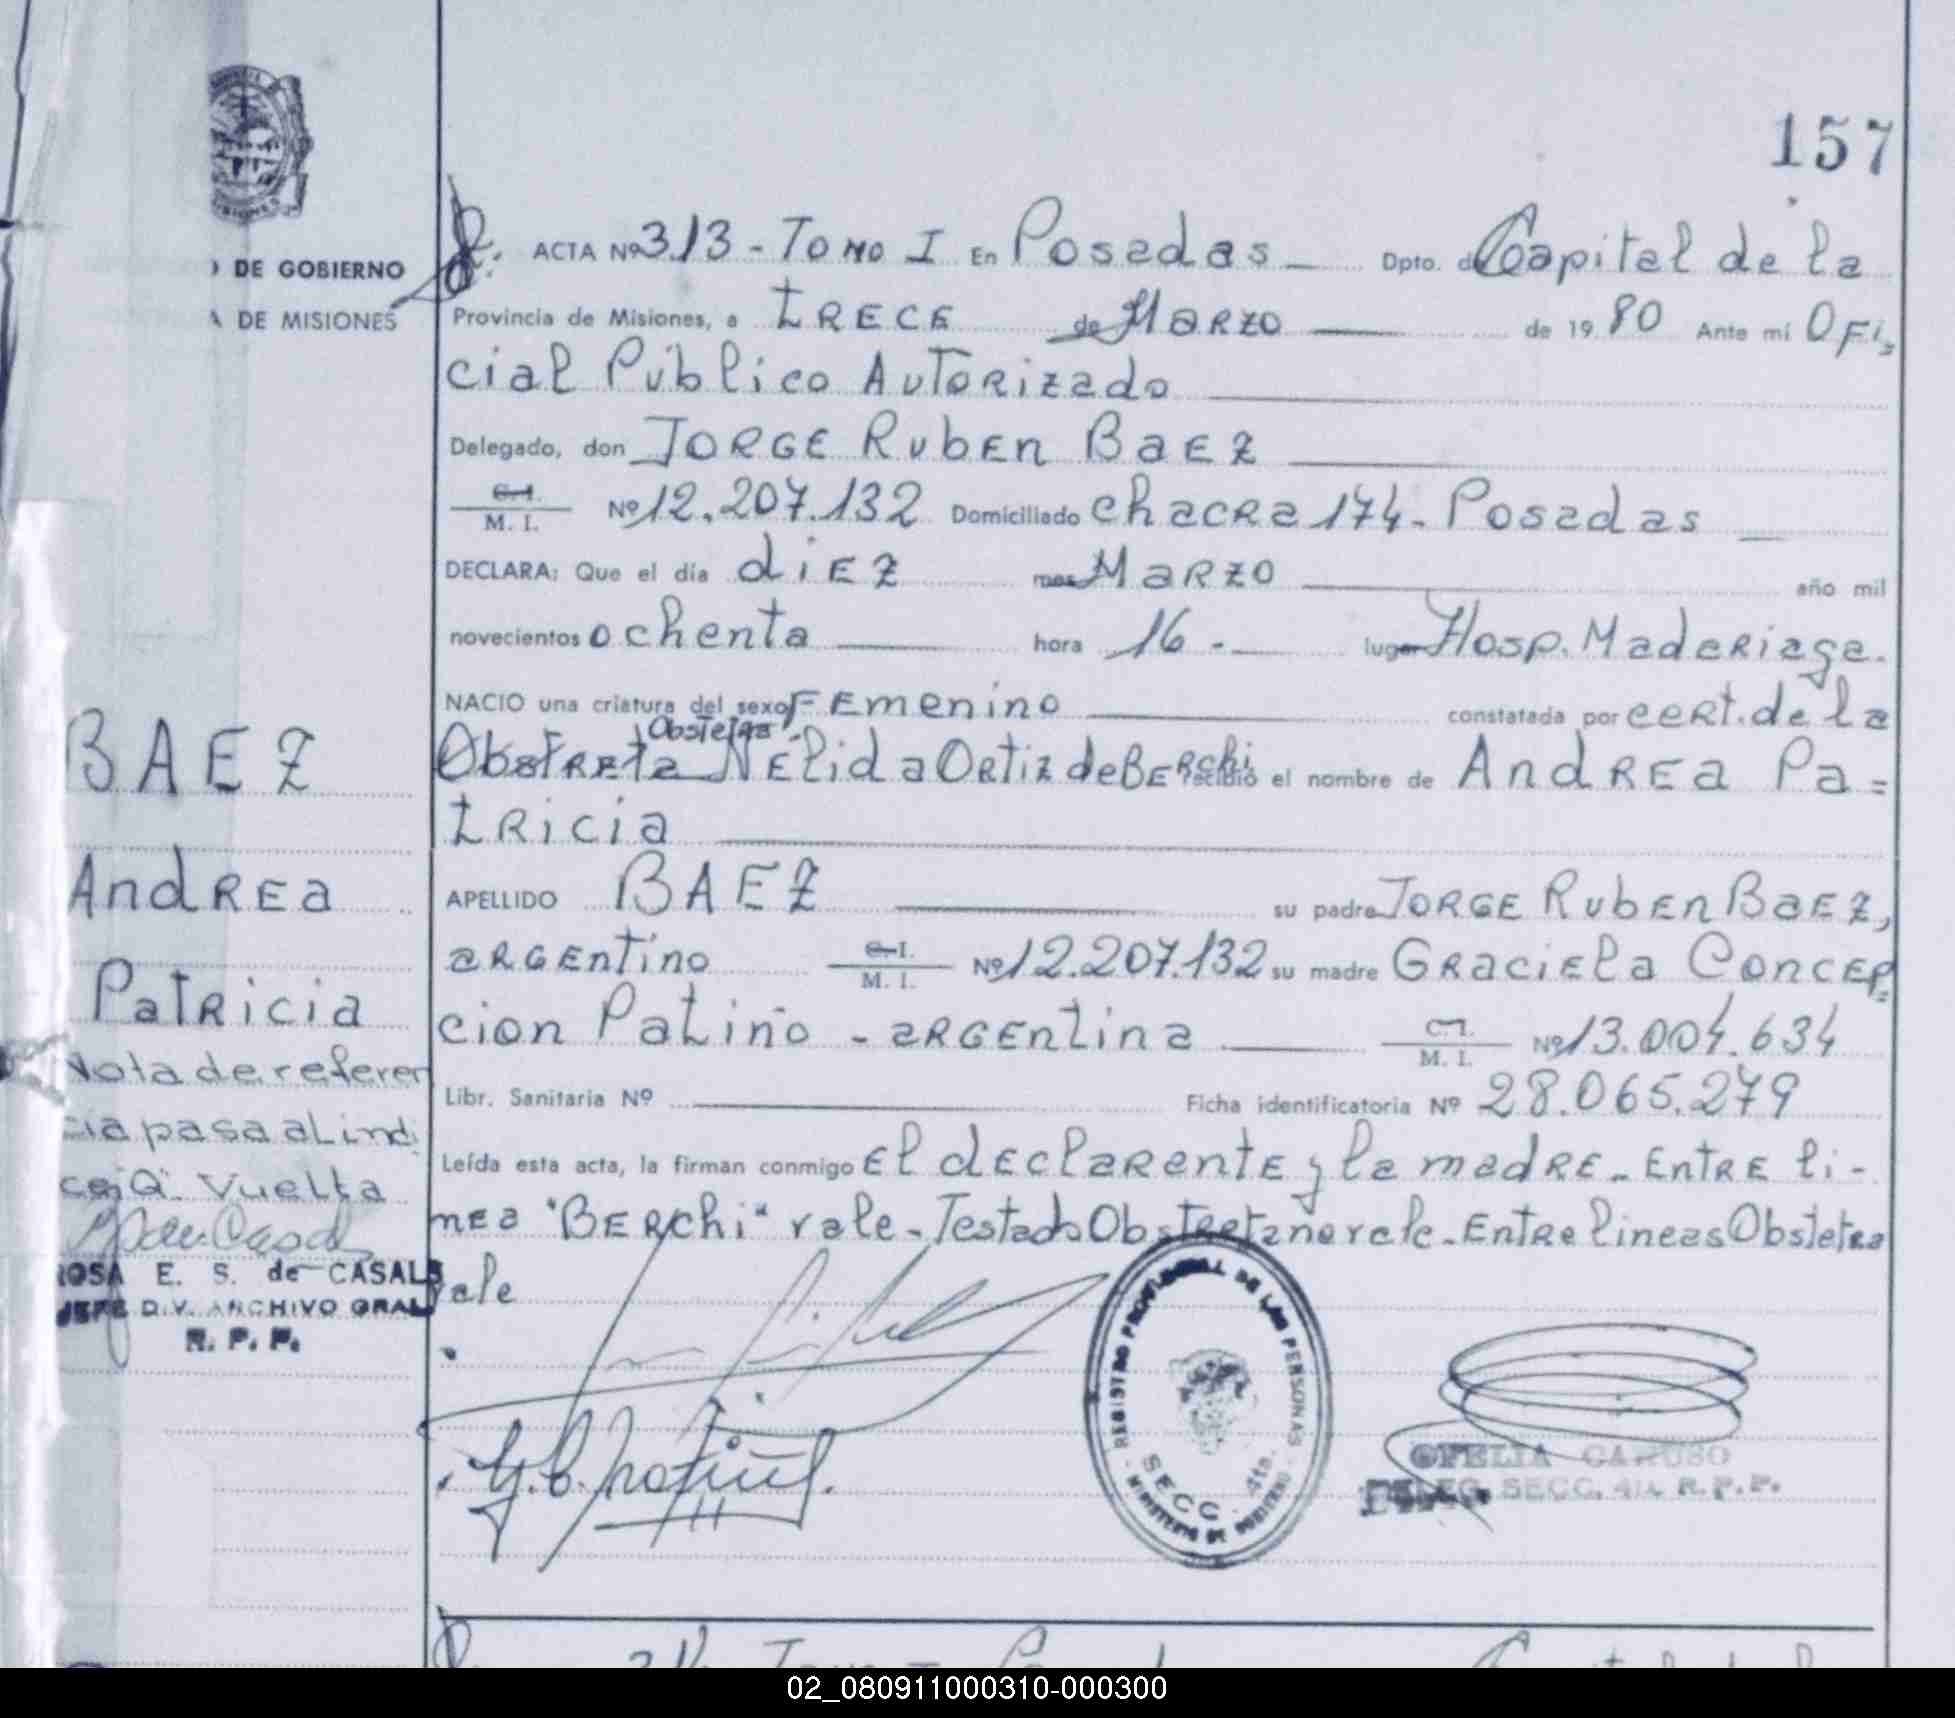 157
) DE GOBIERNO
A DE MISIONES
ACTA Nº 313 - Tomo I En Posadas Dpto. de Capital de la
Provincia de Misiones, a trece de Marzo de 1980 Ante mí Ofi
cial Público Autorizado
Delegado, don Jorge Ruben Baez
C.I. M. I. Nº 12.207.132 Domiciliado chacra 174 - Posadas
DECLARA: Que el día diez mes Marzo año mil
novecientos ochenta hora 16 - lugar Hosp. Madariaga.
NACIO una criatura del sexo Femenino constatada por cert. de la
Obstetra
Obstreta Nélida Ortiz de Berchi recibió el nombre de Andrea Pa=
tricia
APELLIDO BAEZ su padre Jorge Ruben Baez,
argentino C.I. M. I. Nº 12.207.132 su madre Graciela Concep
cion Patiño - argentina C.I. M. I. Nº 13.004.634
Libr. Sanitaria Nº Ficha identificatoria Nº 28.065.279
Leída esta acta, la firman conmigo el declarante y la madre - Entre li-
nea "Berchi" vale - Testado Obstreta no vale - Entre lineas Obstetra
vale
BAEZ
Andrea
Patricia
Nota de referen
cia pasa al indi
ce "a" Vuelta
ROSA E. S. de CASALS
JEFE DIV. ARCHIVO GRAL
R. P. P.
G. C. Patiño
REGISTRO PROVINCIAL DE LAS PERSONAS
SECC. 4ta.
MINISTERIO DE GOBIERNO
OFELIA CARUSO
DELEG. SECC. 4ta R.P.P.
02_080911000310-000300